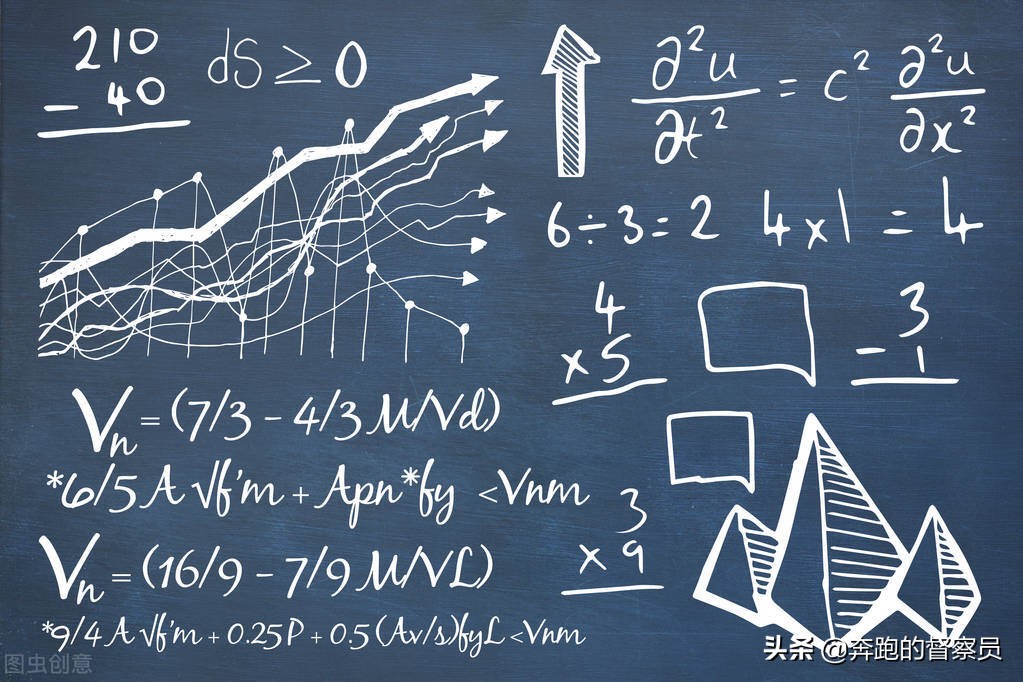 210
- 40
dS ≥ 0
∂²u/∂t² = c² ∂²u/∂x²
6÷3=2
4x1 = 4
4
x5
3
- 1
Vn = (7/3 - 4/3 M/Vd)
*6/5 A √f'm + Apn*fy <Vnm
3
x 9
Vn = (16/9 - 7/9 M/VL)
*9/4 A √f'm + 0.25P + 0.5 (Av/s)fyL <Vnm
图虫创意
头条 @奔跑的督察员